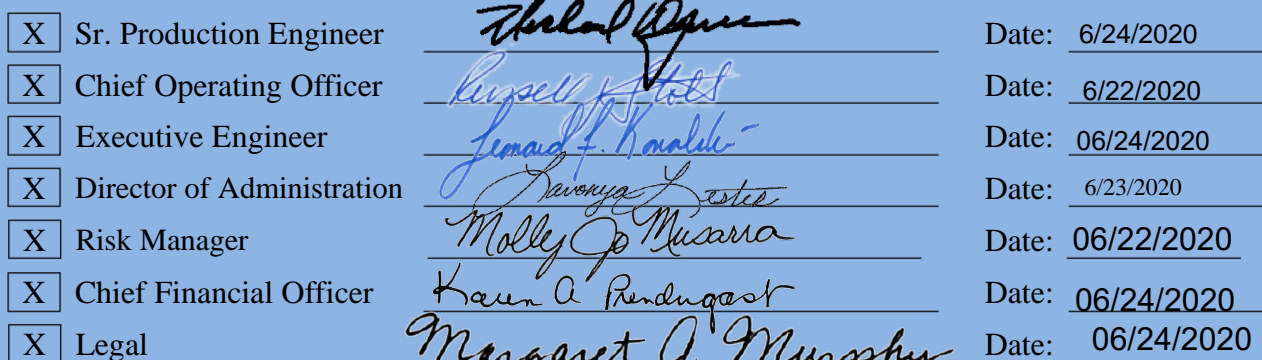 X Sr. Production Engineer Date: 6/24/2020
X Chief Operating Officer Russell Date: 6/22/2020
X Executive Engineer Leonard F. Date: 06/24/2020
X Director of Administration Lavonya Lester Date: 6/23/2020
X Risk Manager Molly Jo Musarra Date: 06/22/2020
X Chief Financial Officer Karen A Prendergast Date: 06/24/2020
X Legal Margaret A. Murphy Date: 06/24/2020